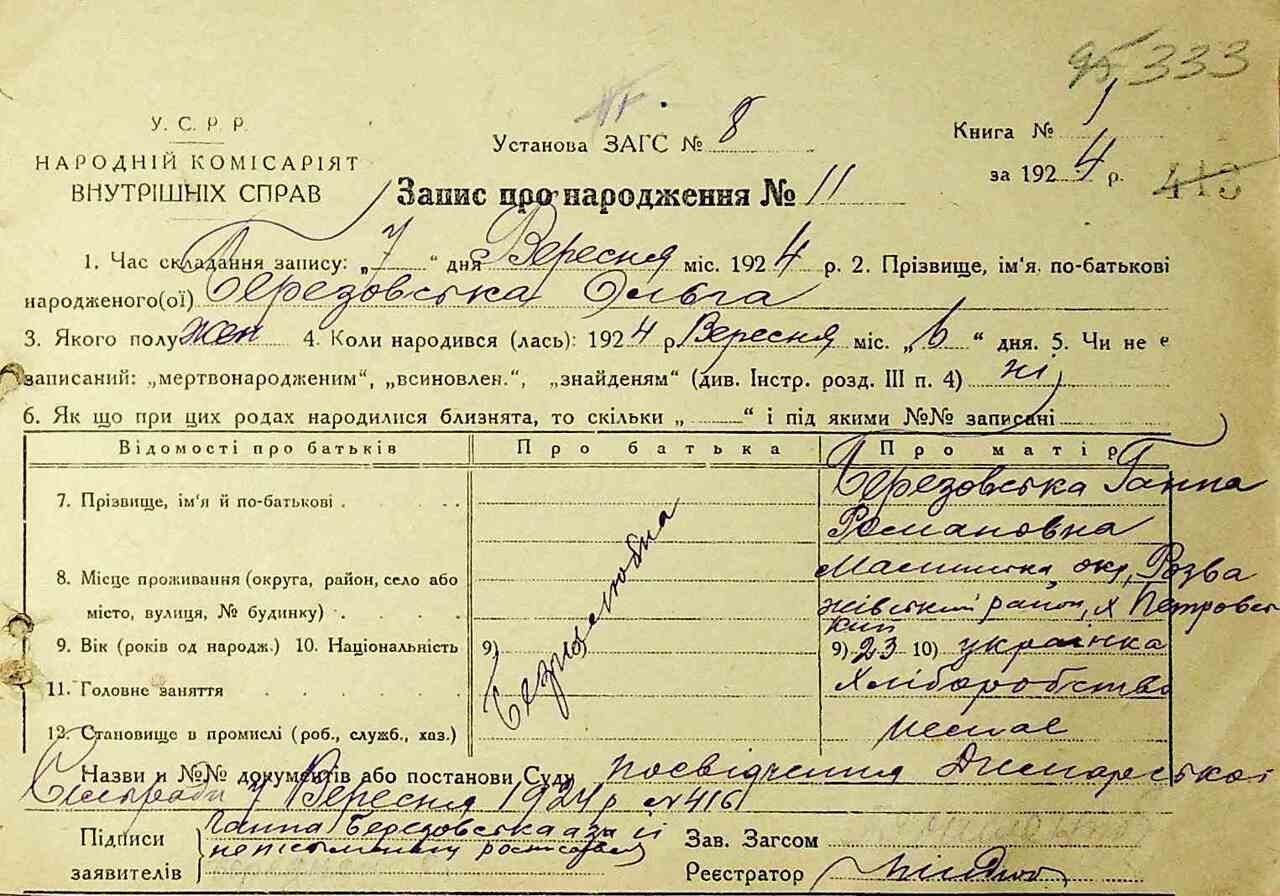 95, 333
У. С. Р. Р.
НАРОДНІЙ КОМІСАРІЯТ
ВНУТРІШНІХ СПРАВ
Установа ЗАГС № 8
Книга № 1
за 1924 р.
413
Запис про народження № 11
1. Час складання запису: „7“ дня Вересня міс. 1924 р. 2. Прізвище, ім'я, по-батькові
народженого(ої) Березовська Ольга
3. Якого полу жен 4. Коли народився (лась): 1924 р Вересня міс. „6“ дня. 5. Чи не є
записаний: „мертвонародженим“, „всиновлен.“, „знайденям“ (див. Інстр. розд. III п. 4) ні
6. Як що при цих родах народилися близнята, то скільки „ “ і під якими №№ записані
Відомості про батьків Про батька Про матір
7. Прізвище, ім'я й по-батькові . Березовська Ганна
Романовна
8. Місце проживання (округа, район, село або окр, Розва
місто, вулиця, № будинку) . жівський район, х Петровсь
кий
9. Вік (років од народж.) 10. Національність 9) 9) 23 10) українка
11. Головне заняття хліборобство
12. Становище в промислі (роб., служб., хаз.) немає
Назви й №№ документів або постанови Суду посвідчення
Сільради 7 Вересня 1924 р №416
Підписи Ганна Березовська а за її Зав. Загсом
заявителів Реєстратор